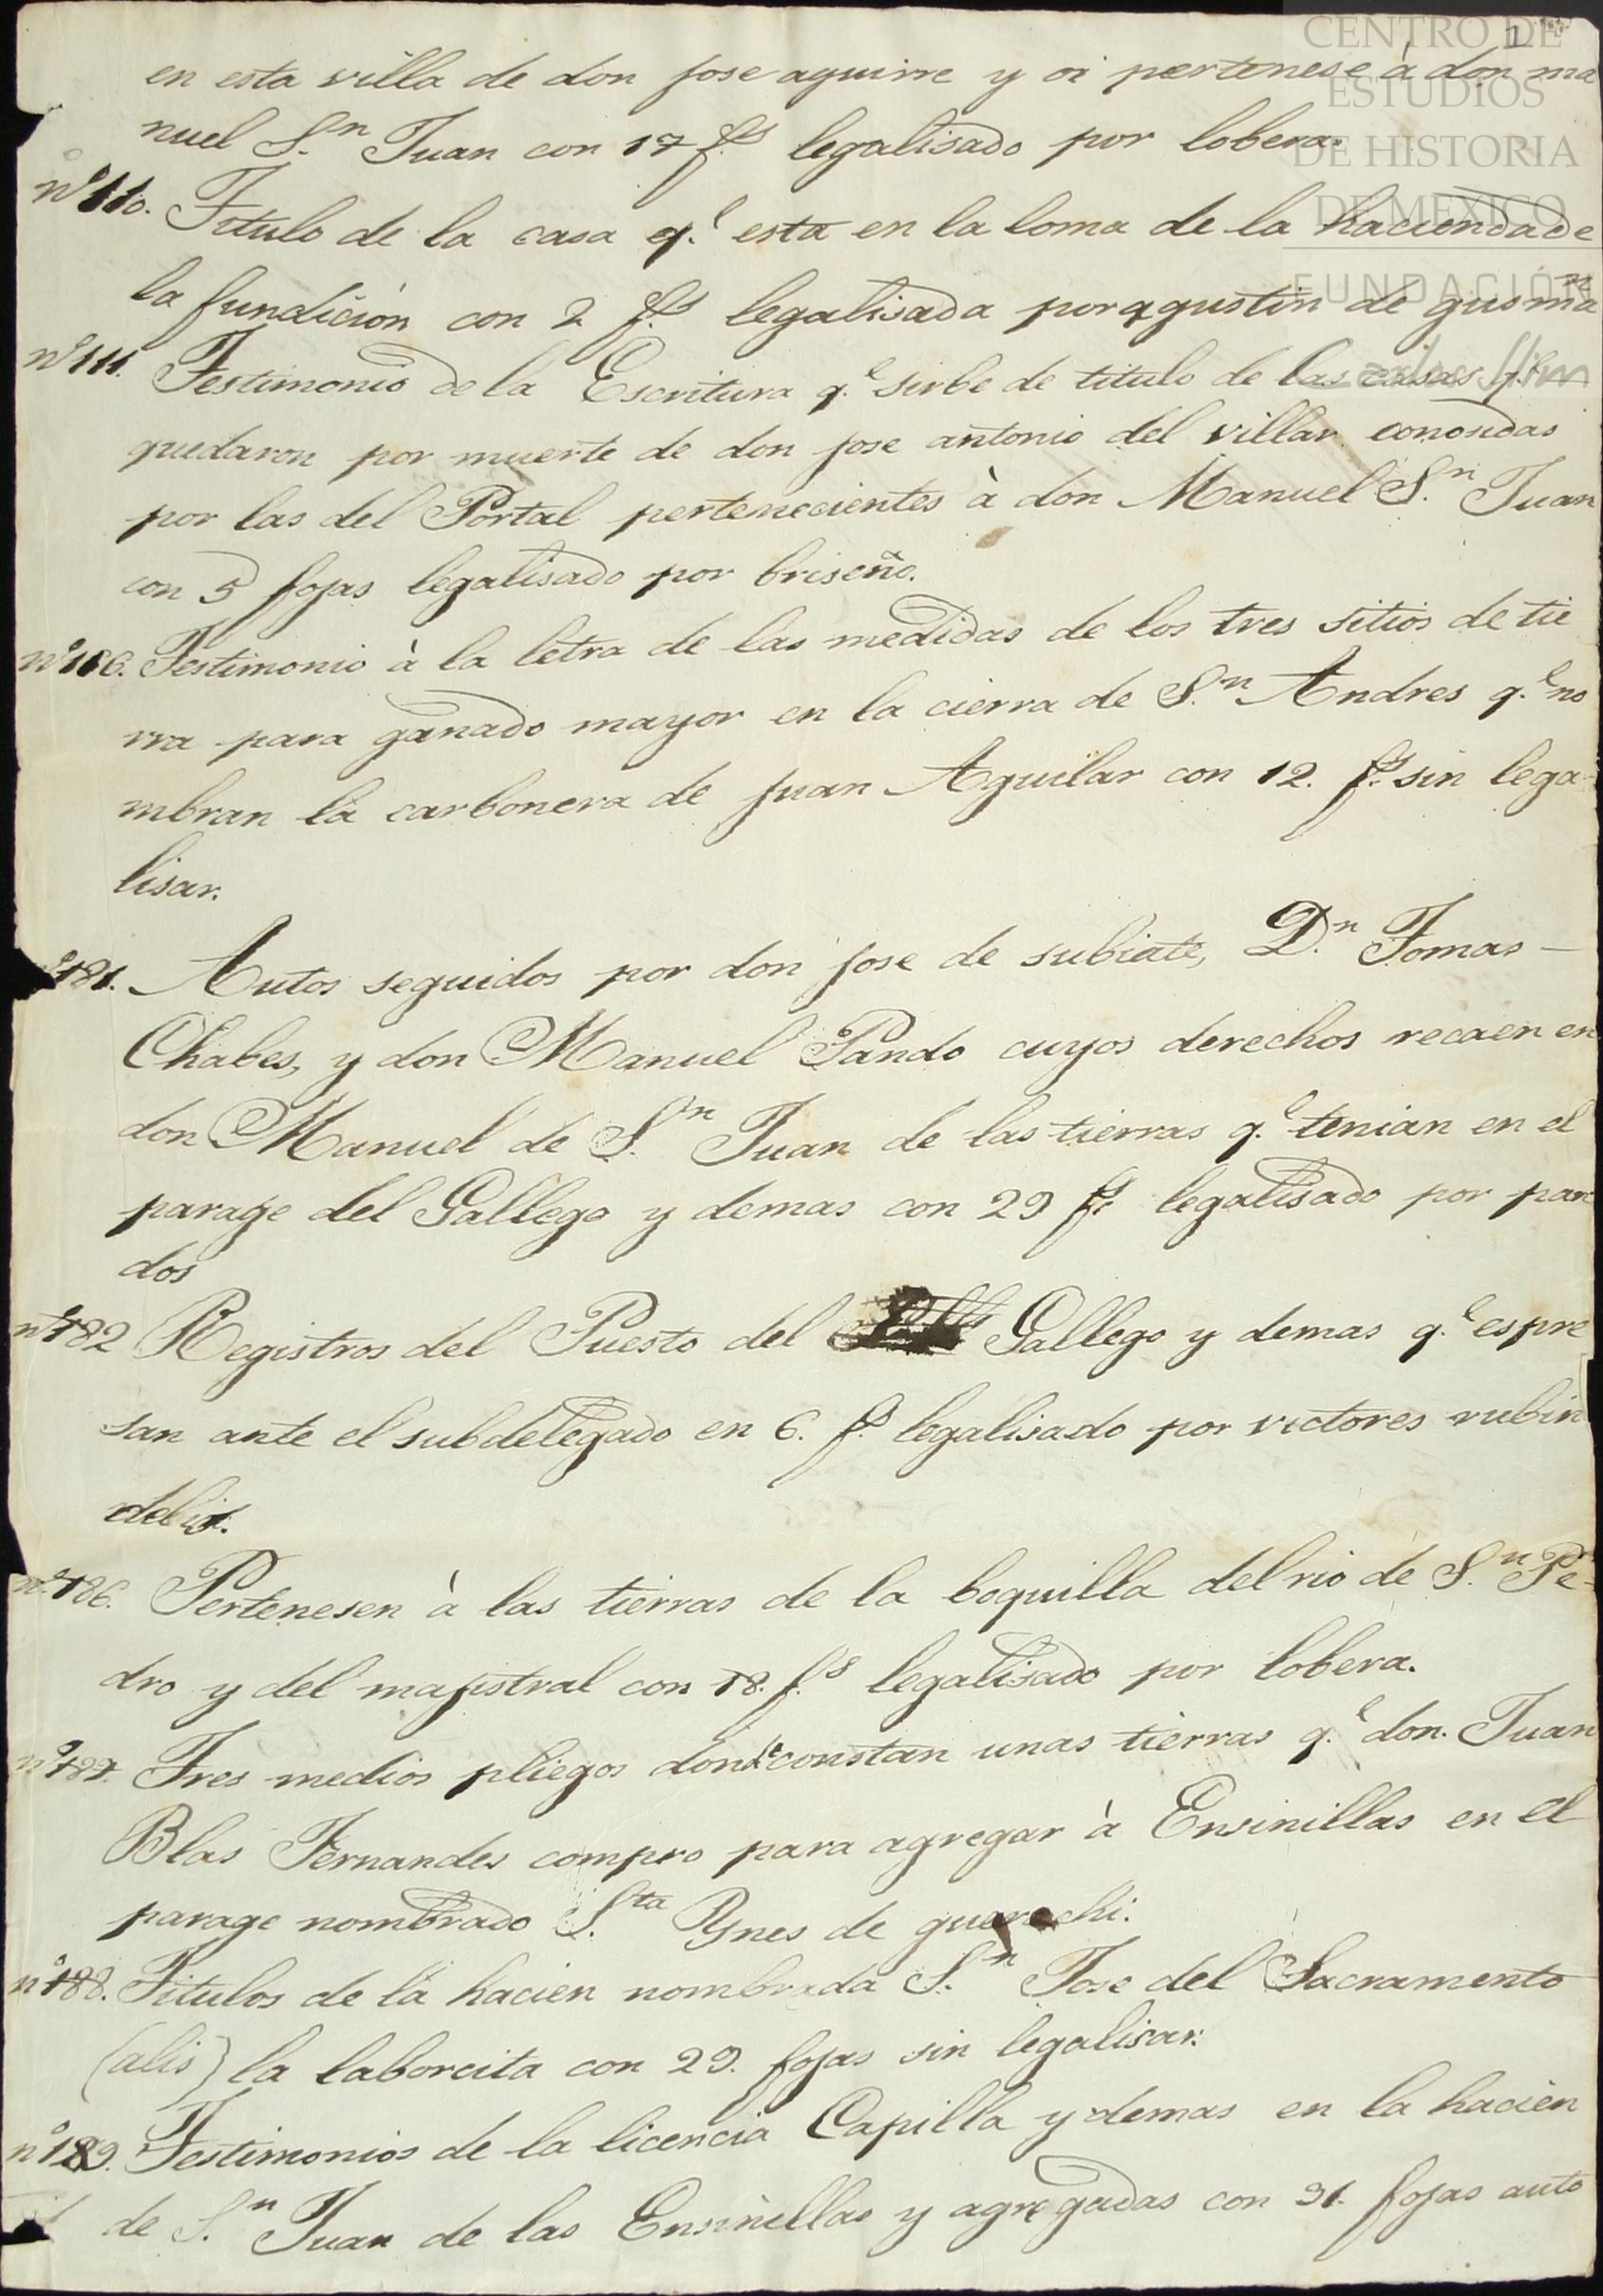 CENTRO DE
ESTUDIOS
DE HISTORIA
DE MEXICO
FUNDACIÓN
1
en esta villa de don jose aguirre y oi pertenese à don ma
nuel S.n Juan con 17 f.s legalisado por lobera.
nº 110. Titulo de la casa q.e esta en la loma de la hacienda de
la fundicion con 2 f.s legalisada por agustin de gusma
nº 111. Testimonio de la Escritura q.e sirbe de titulo de las casas q.e
quedaron por muerte de don jose antonio del villar conosidas
por las del Portal pertenecientes à don Manuel S.n Juan
con 5 fojas legalisado por briseño.
nº 116. Testimonio à la letra de las medidas de los tres sitios de tie
rra para ganado mayor en la cierra de S.n Andres q.e no
mbran la carbonera de juan Aguilar con 12. f.s sin lega
lisar.
181. Autos seguidos por don jose de subiate, D.n Tomas —
Chabes, y don Manuel Pando cuyos derechos recaen en
don Manuel de S.n Juan de las tierras q.e tenian en el
parage del Gallego y demas con 29 f.s legalisado por pan
dos
nº 182 Registros del Puesto del Gallego y demas q.e espre
san ante el subdelegado en 6. f.s legalisado por victores rubin
nº 186. Pertenesen à las tierras de la boquilla del rio de S.n Pe-
dro y del majistral con 18. f.s legalisado por lobera.
nº 187. Tres medios pliegos donde constan unas tierras q.e don. Juan
Blas Fernandes compro para agregar à Ensinillas en el
parage nombrado S.ta Ynes de guarachi.
nº 188. Titulos de la hacien nombrada S.n Jose del Sacramento
(alis) la laborcita con 29. fojas sin legalisar.
nº 189. Testimonios de la licencia Capilla y demas en la hacien
de S.n Juan de las Ensinillas y agregadas con 31. fojas auto